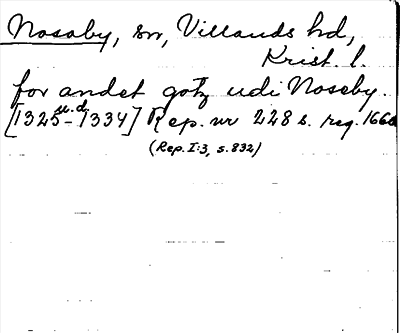 Nosaby, sn, Villands hd,
Krist. l.
for andet gotz udi Noseby.
u.d.
[1325–1334] Rep. nr 228 s. reg. 1660
(Rep. I:3, s. 832)